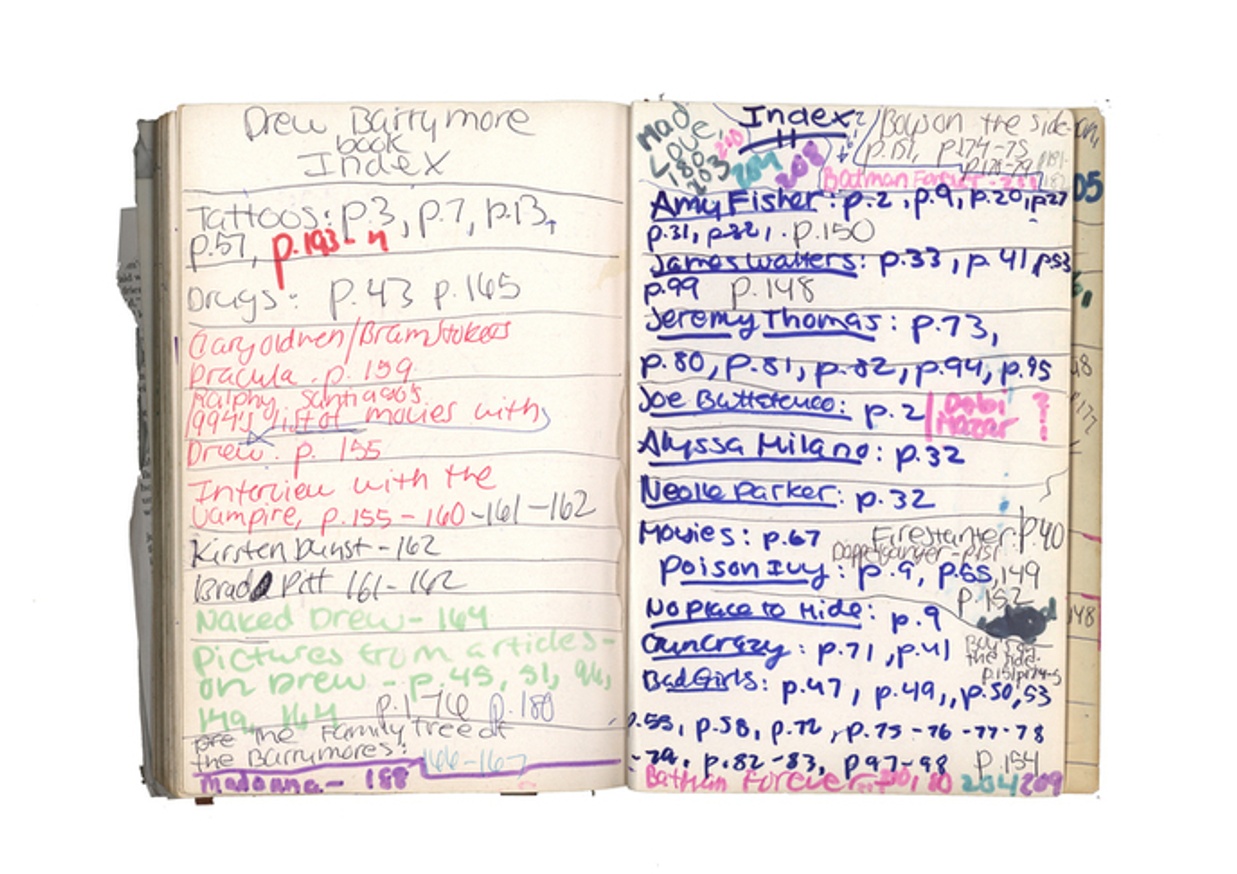 Drew Barrymore
book
Index
Tattoos: p.3, p.7, p.13,
p.57, p.193-4
Drugs: p.43 p.165
Gary oldmen/Bram Stokers
Dracula. p. 159
Ralphy Santiago's
1994's list of movies with
Drew: p. 155
Interview with the
Vampire, p.155-160-161-162
Kirsten Dunst-162
Brad Pitt 161-162
Naked Drew-164
Pictures from articles-
on Drew - p.45, 51, 94,
149, 164 p.176 p.180
the Family tree of
the Barrymores: 166-167
Madonna- 188
Index
Mad
Love,
180
203 210 204 208
Boys on the side-
p.151, p.174-75
p.178-79
Batman Forever-
Amy Fisher: p.2, p.9, p.20, p.27
p.31, p.32, p.150
James Walters: p.33, p.41, p.53
p.99 p.148
Jeremy Thomas: p.73,
p.80, p.81, p.82, p.94, p.95
Joe Buttafuco: p.2 Debi
Mazar ?
Alyssa Milano: p.32
Neolle Parker: p.32
Movies: p.67 Firestarter p.40
Doppelganger-p151
Poison Ivy: p.9, p.55, 149
p.152
No place to Hide: p.9
GunCrazy: p.71, p.41
Boys on
the side-
p.151 p174-5
BadGirls: p.47, p.49,, p.50, 53
p.55, p.58, p.72, p.75-76-77-78
-79, p.82-83, p97-98 p.154
Batman Forever- 180 204 209